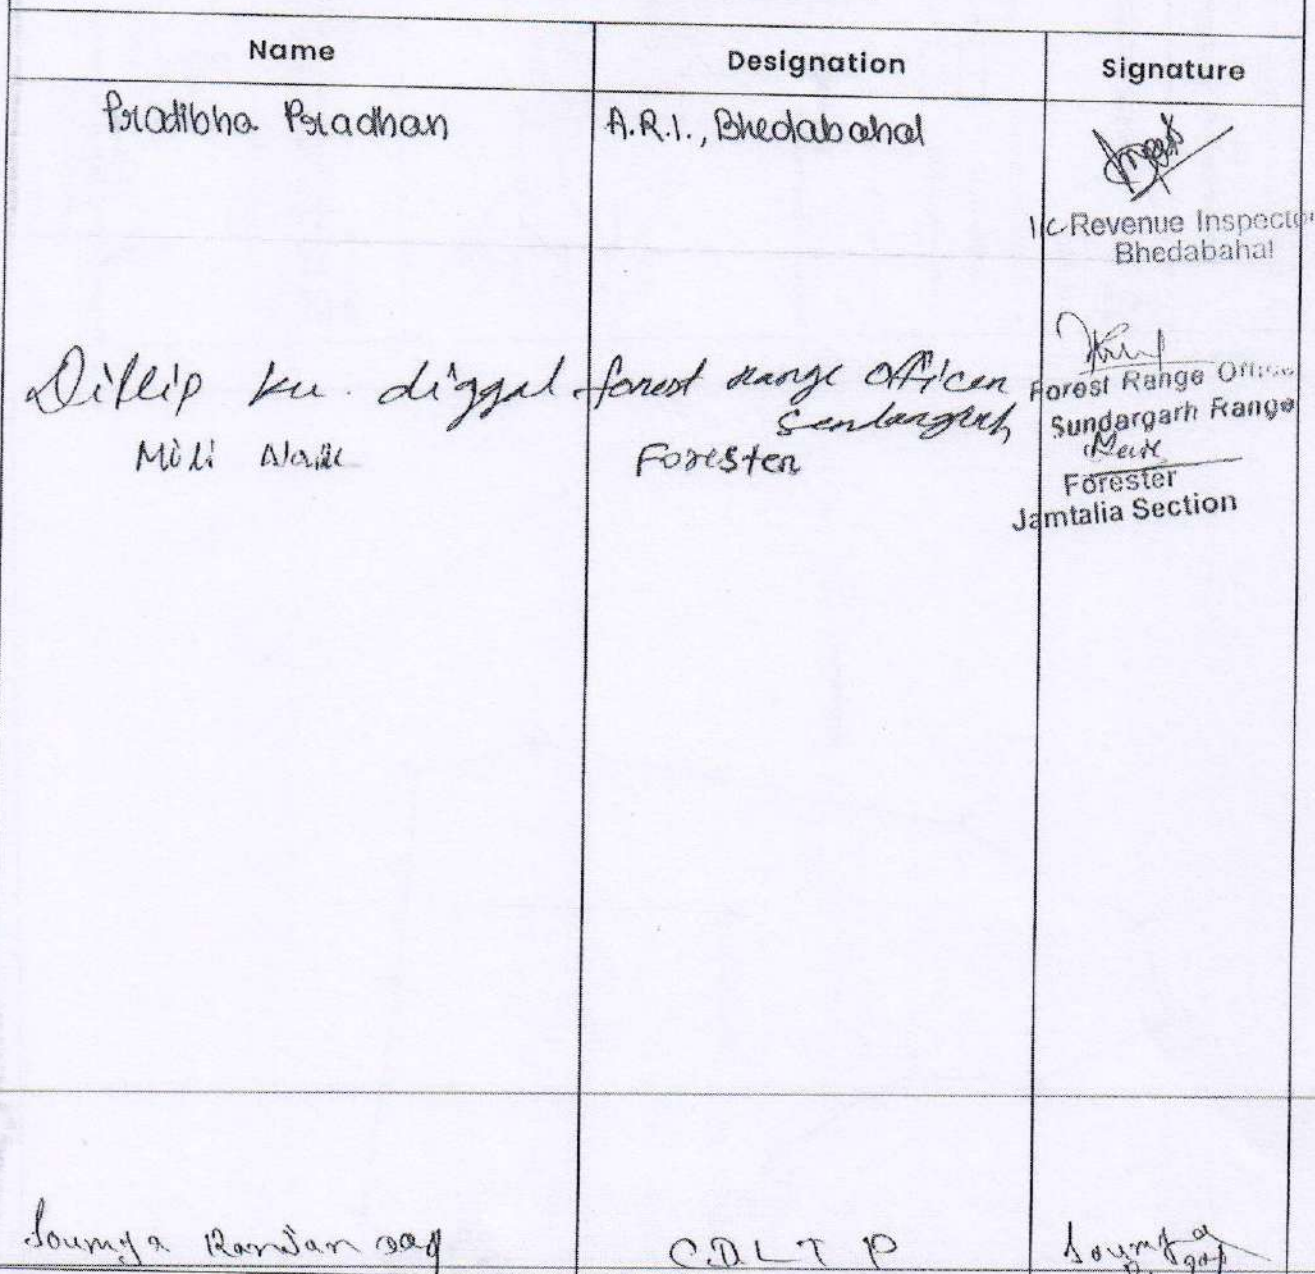 Name Designation Signature
Pradibha Pradhan A.R.I., Bhedabahal
I/C Revenue Inspector
Bhedabahal
Dillip ku. diggal forest range officer
Sundargarh
Forest Range Office
Sundargarh Range
Mili Naik Forester
Naik
Forester
Jamtalia Section
Soumya Ranjan C.D.L.T P Soumya